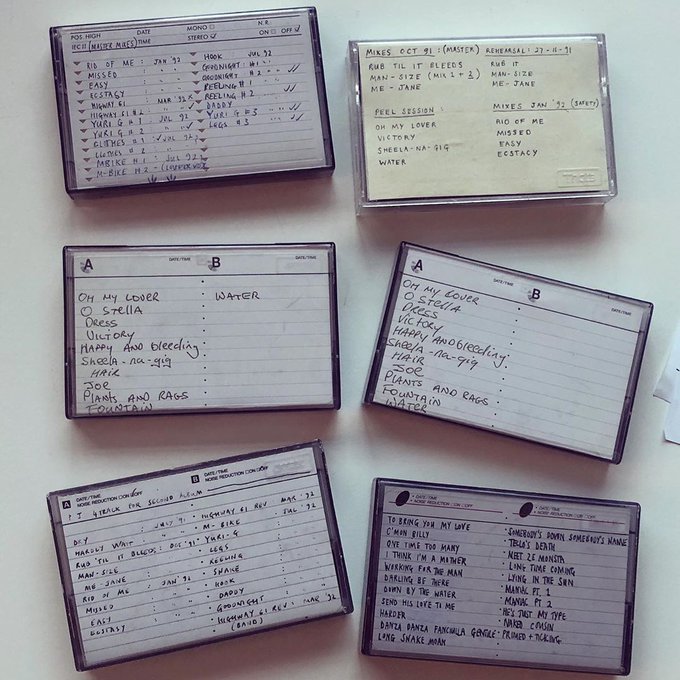 POS. HIGH
MONO
STEREO
N.R.
ON OFF
IEC II
(MASTER MIXES)
DATE
TIME
RID OF ME : JAN '92
MISSED
EASY
ECSTASY
HIGHWAY 61 : MAR '92
HIGHWAY 61 #2
YURI G #1 JULY
YURI G #2
CLOTHES #1 JUL 92
CLOTHES #2
MBIKE #1 : JUL 92
M-BIKE #2 -
HOOK JUL 92
GOODNIGHT #1
GOODNIGHT #2
REELING #1
REELING #2
DADDY
YURI G #3
LEGS #3
MIXES OCT 91 : (MASTER)
RUB TIL IT BLEEDS
MAN-SIZE (MIX 1 + 2)
ME-JANE
REHEARSAL : 27-11-91
RUB IT
MAN-SIZE
ME-JANE
PEEL SESSION :
OH MY LOVER
VICTORY
SHEELA-NA-GIG
WATER
MIXES JAN '92 (SAFETY)
RID OF ME
MISSED
EASY
ECSTACY
A DATE/TIME
B DATE/TIME
OH MY LOVER
O STELLA
DRESS
VICTORY
HAPPY AND bleeding
Sheela-na-gig
HAIR
JOE
PLANTS AND RAGS
FOUNTAIN
WATER
A DATE/TIME
B DATE/TIME
OH MY LOVER
O STELLA
DRESS
VICTORY
HAPPY AND bleeding
Sheela-na-gig
HAIR
JOE
PLANTS AND RAGS
FOUNTAIN
WATER
A DATE/TIME
NOISE REDUCTION ON OFF
B DATE/TIME
NOISE REDUCTION ON OFF
P J. 4TRACK FOR SECOND ALBUM
DRY : JULY 91
HARDLY WAIT : " "
RUB 'TIL IT BLEEDS : OCT '91
MAN-SIZE " "
ME-JANE " "
RID OF ME JAN '92
MISSED " "
EASY " "
ECSTASY " "
HIGHWAY 61 REV. MAR '92
M-BIKE : JUL '92
YURI-G
LEGS
REELING
SNAKE
HOOK
DADDY
GOODNIGHT
HIGHWAY 61 REV : MAR '92
(BAND)
DATE/TIME
NOISE REDUCTION ON OFF
DATE/TIME
NOISE REDUCTION ON OFF
TO BRING YOU MY LOVE
C'MON BILLY
ONE TIME TOO MANY
I THINK I'M A MOTHER
WORKING FOR THE MAN
DARLING BE THERE
DOWN BY THE WATER
SEND HIS LOVE TO ME
HARDER
DANZA DANZA FANCIULLA GENTILE
LONG SNAKE MOAN
SOMEBODY'S DOWN, SOMEBODY'S NAME
TEELO'S DEATH
MEET ZE MONSTA
LONG TIME COMING
LYING IN THE SUN
MANIAC PT. 1
MANIAC PT 2
HE'S JUST MY TYPE
NAKED COUSIN
PRIMED + TICKING